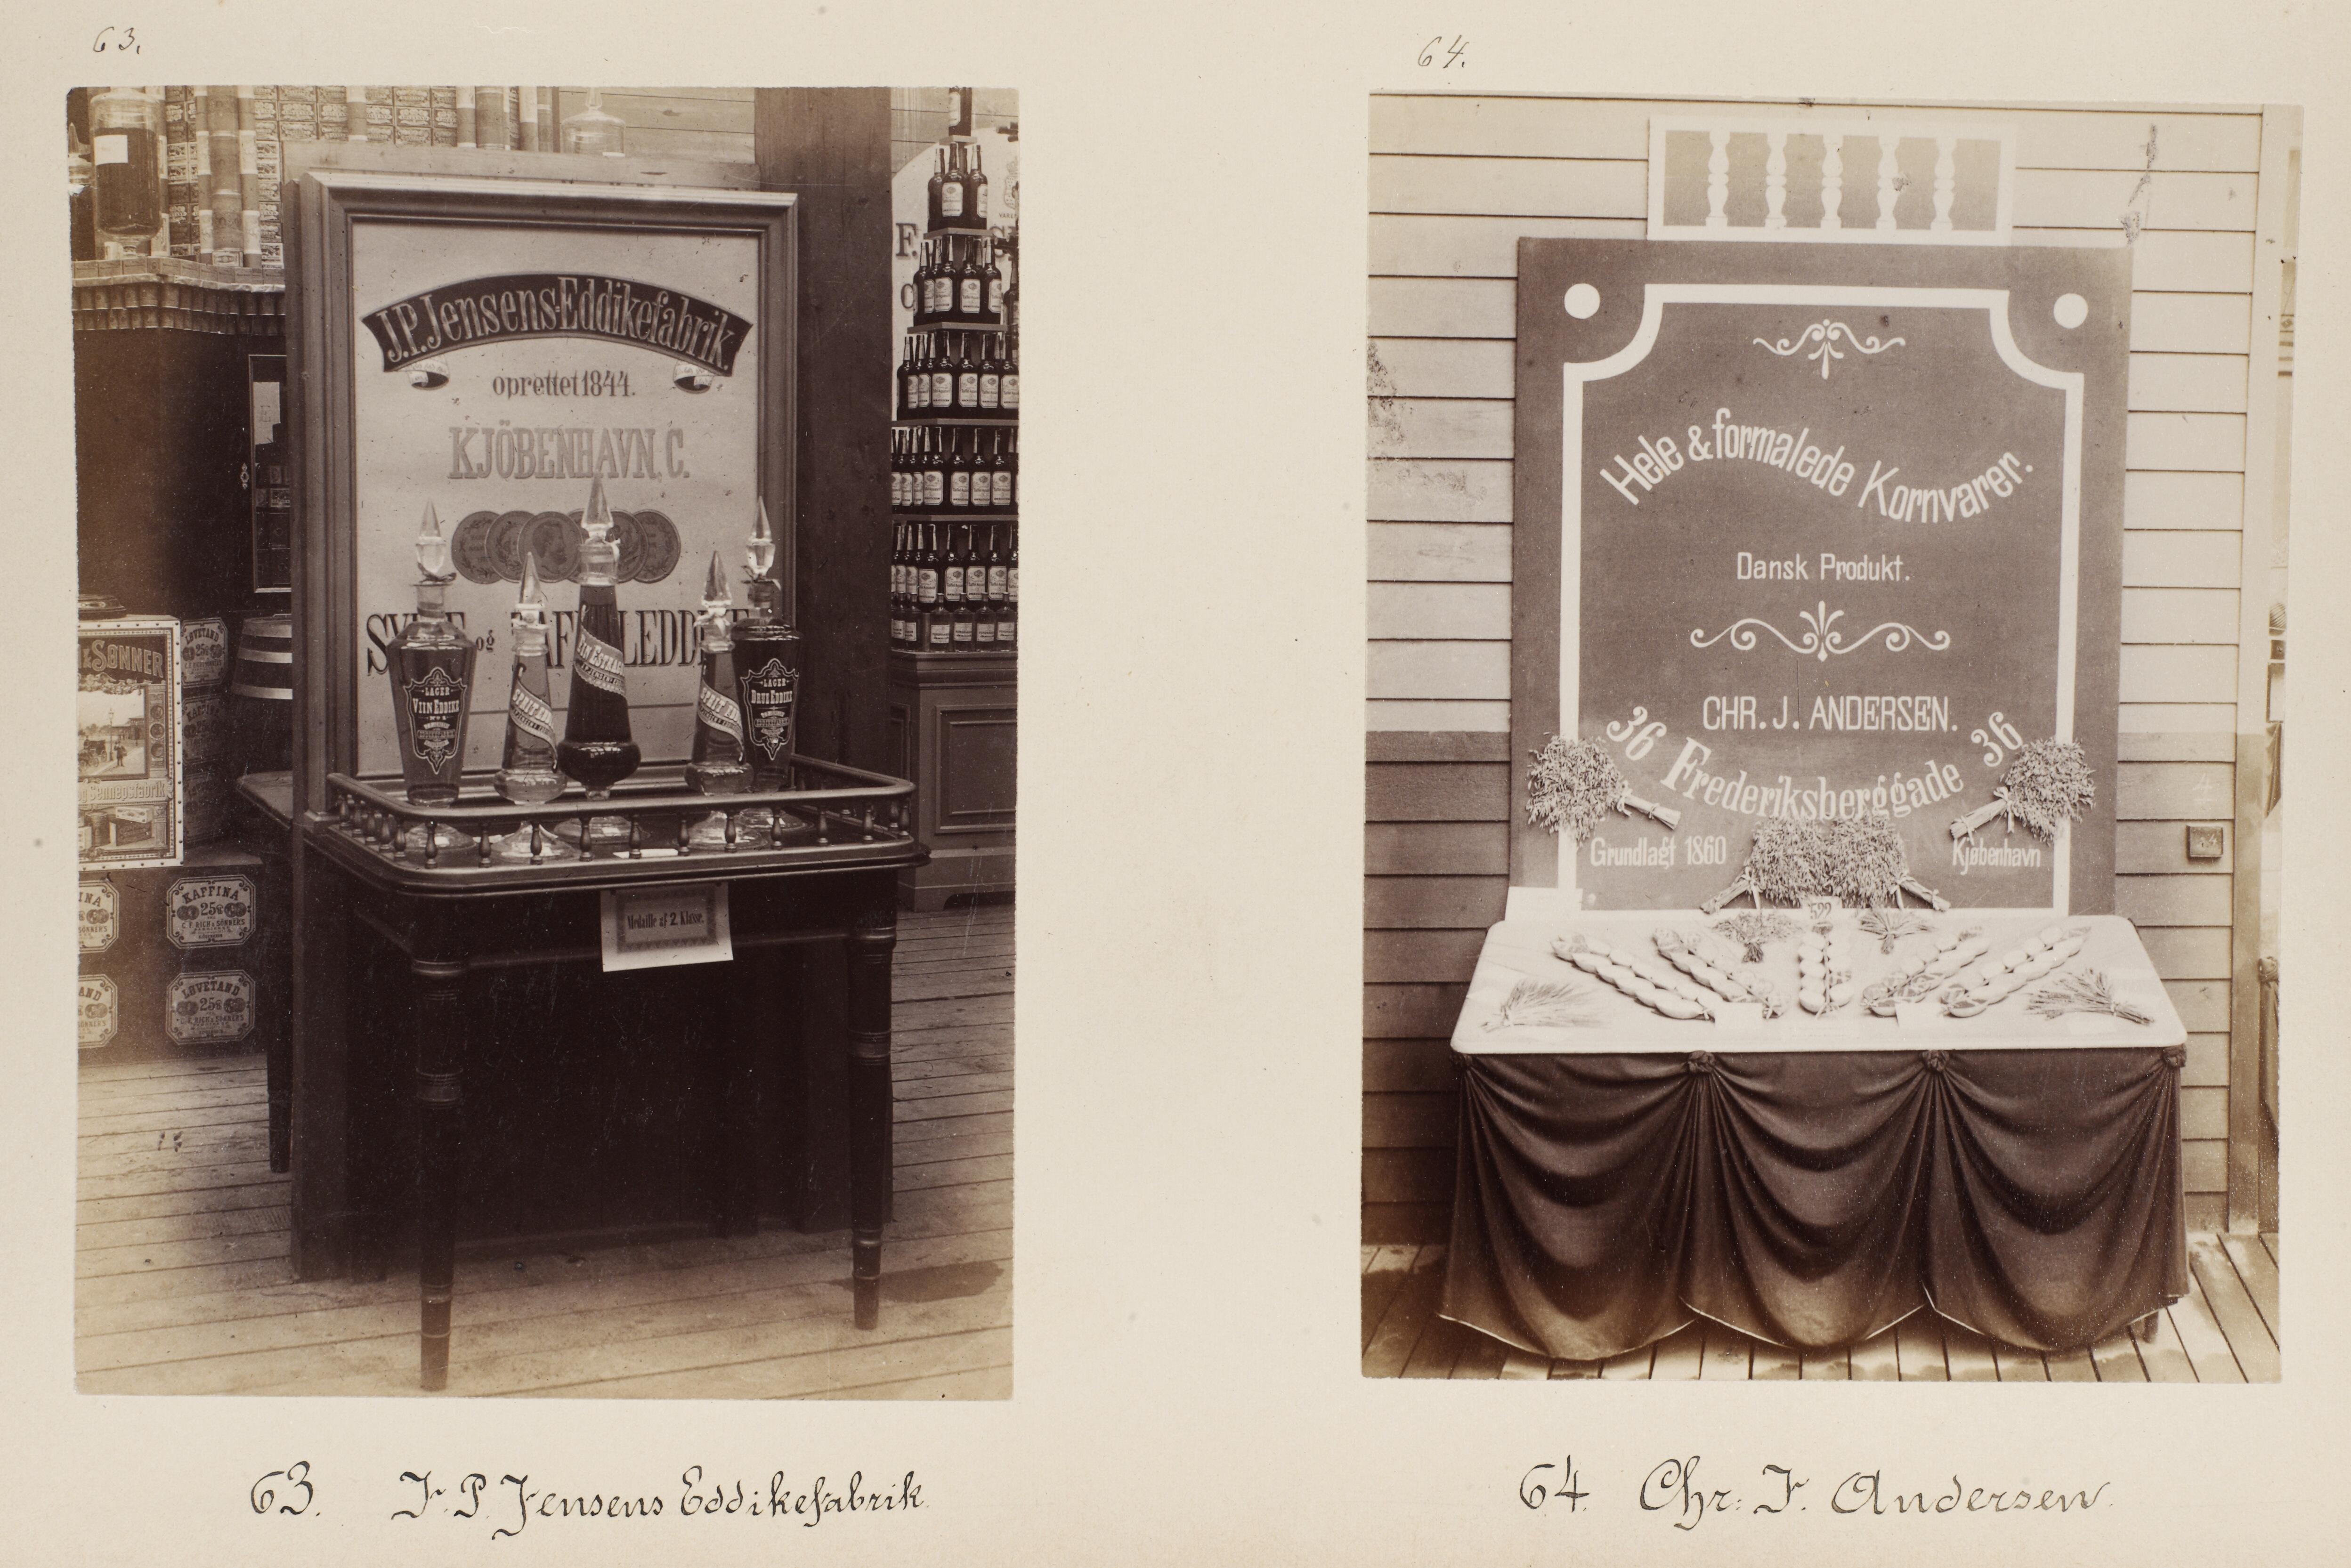 63.
J.P. Jensens Eddikefabrik.
oprettet 1844.
KJÖBENHAVN, C.
og
LAGER
VIIN EDDIKE
LAGER
DRUE EDDIKE
Medaille af 2. Klasse.
& SØNNER
Sennepsfabrik
LØVETAND
25
KAFFINA
25
LØVETAND
25
F.
64.
Hele & formalede Kornvarer.
Dansk Produkt.
CHR. J. ANDERSEN.
36 Frederiksberggade 36
Grundlagt 1860
Kjøbenhavn
522
63. J. P. Jensens Eddikefabrik.
64. Chr: J. Andersen.